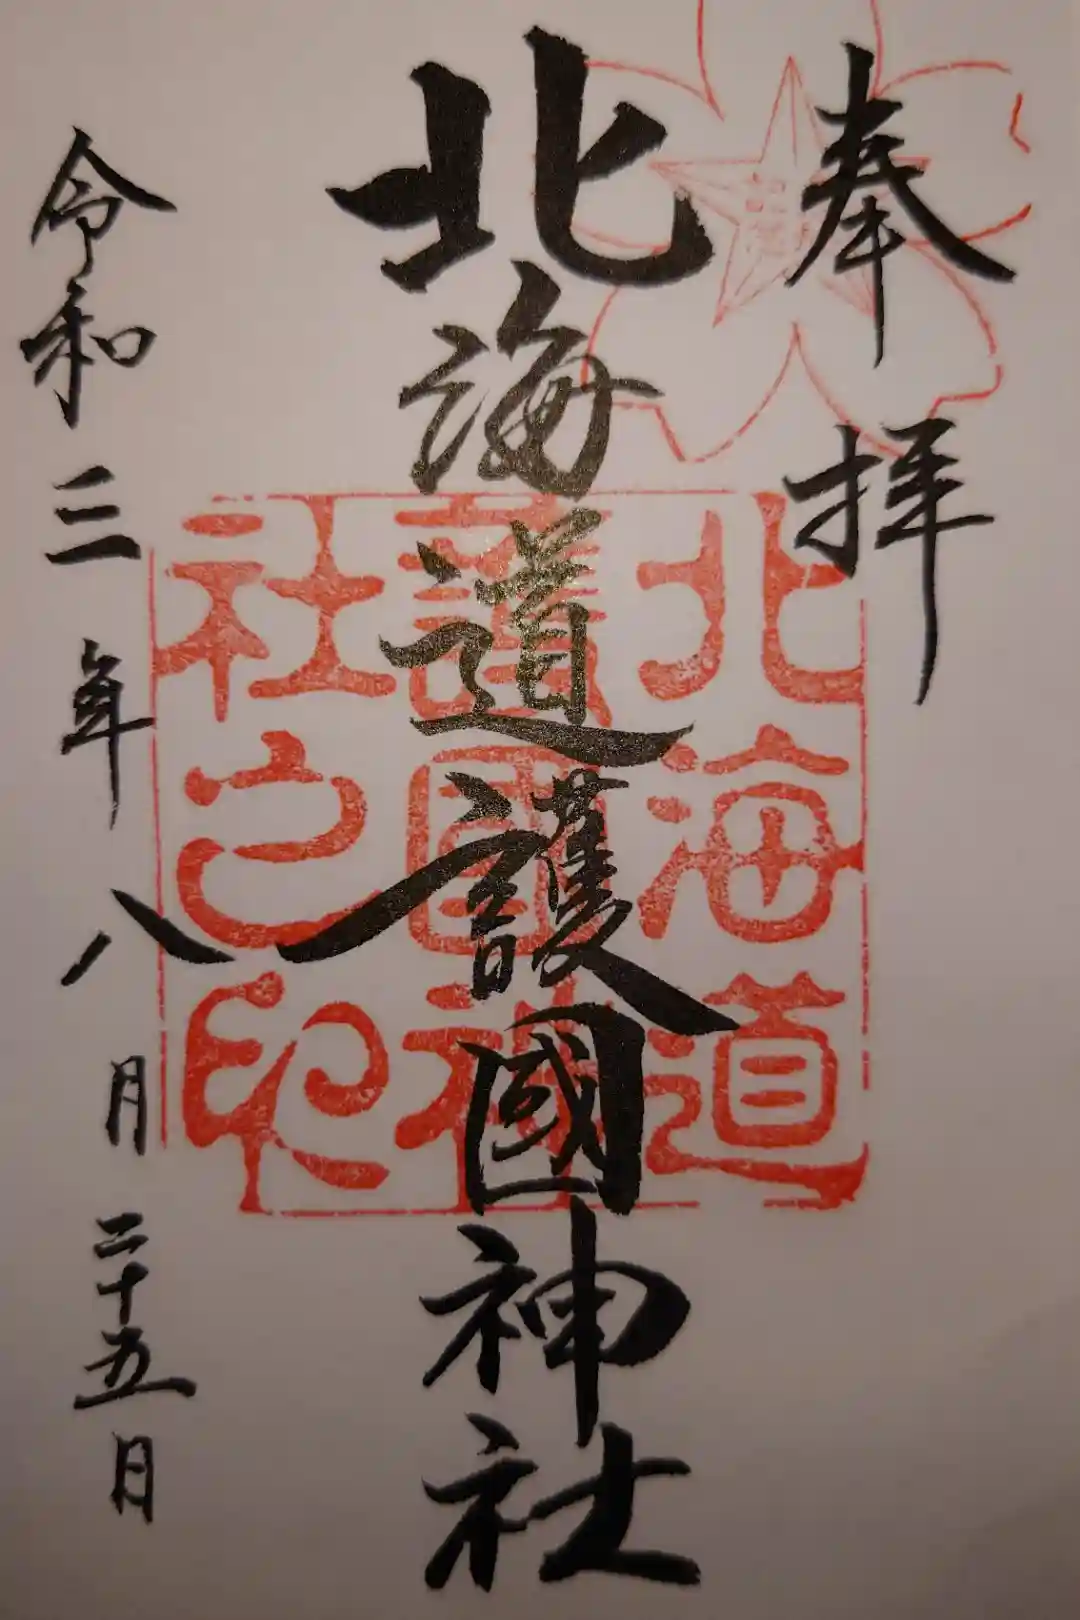 奉拝
北海道護國神社
令和三年八月二十五日
北海道
護國神
社之印